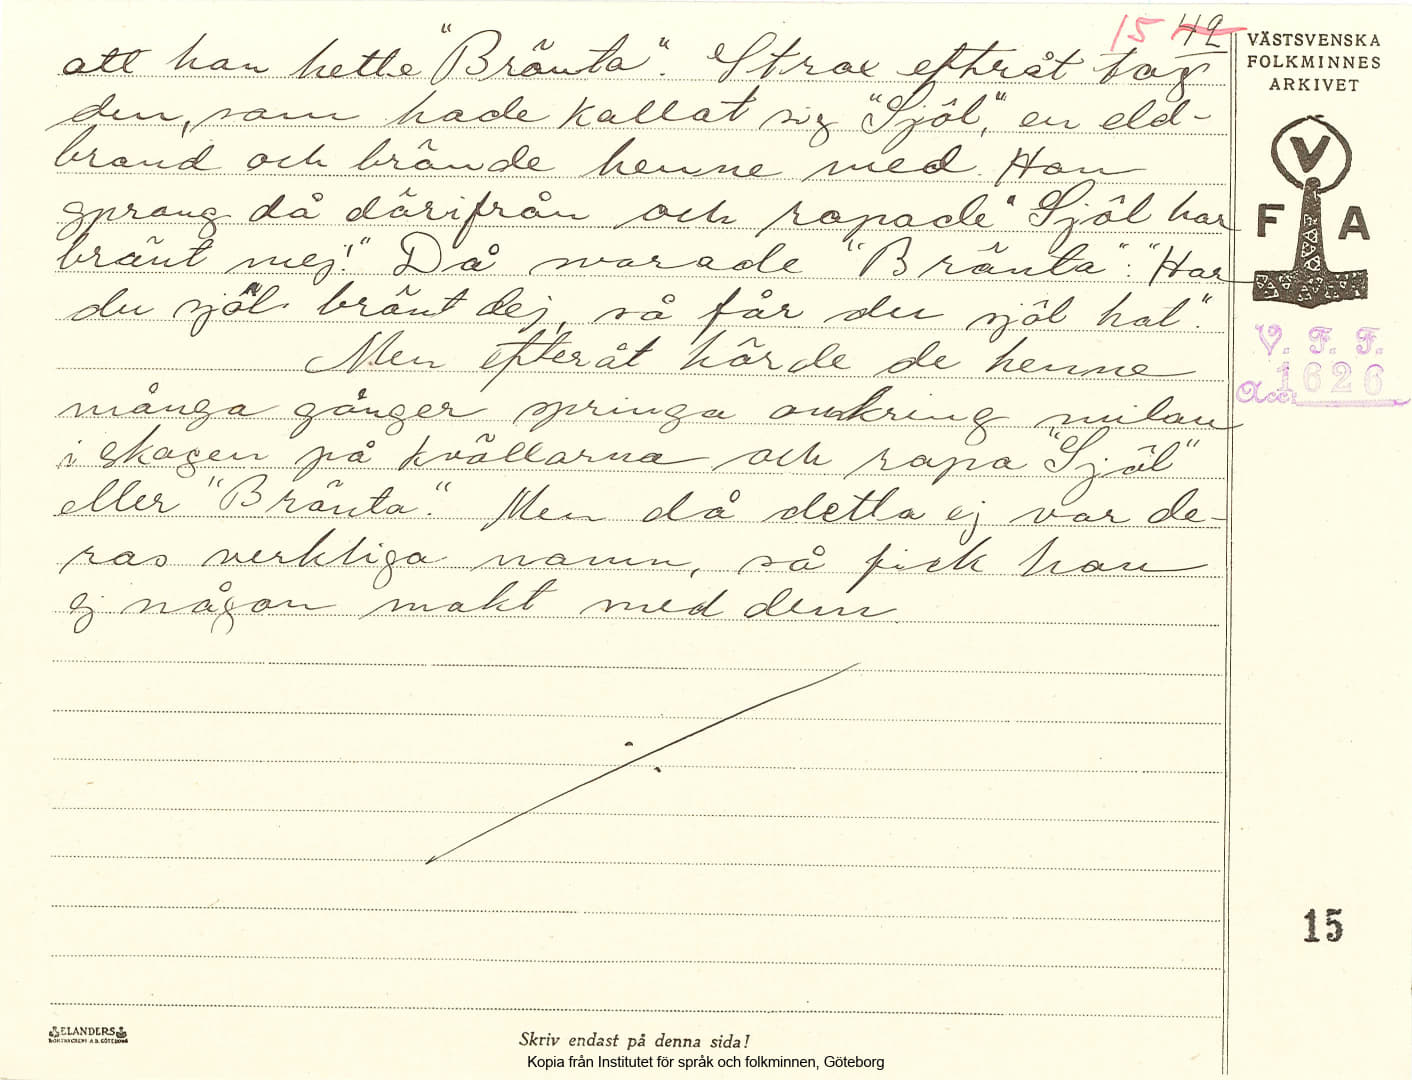 15 42
att han hette "Bränta". Strax efteråt tog
den, som hade kallat sig "Sjöl," en eld-
brand och brände henne med. Hon
sprang då därifrån och ropade "Sjöl har
bränt mej!" Då svarade "Bränta": "Har
du sjöl bränt dej, så får du sjöl hal."
Men efteråt hörde de henne
många gånger springa omkring milan
i skogen på kvällarna och ropa "Sjöl"
eller "Bränta". Men då detta ej var de-
ras verkliga namn, så fick hon
ej någon makt med dem
VÄSTSVENSKA
FOLKMINNES
ARKIVET
V
F A
V. F. F.
Acc: 1626
15
ELANDERS
BOKTRYCKERI A.B. GÖTEBORG
Skriv endast på denna sida!
Kopia från Institutet för språk och folkminnen, Göteborg